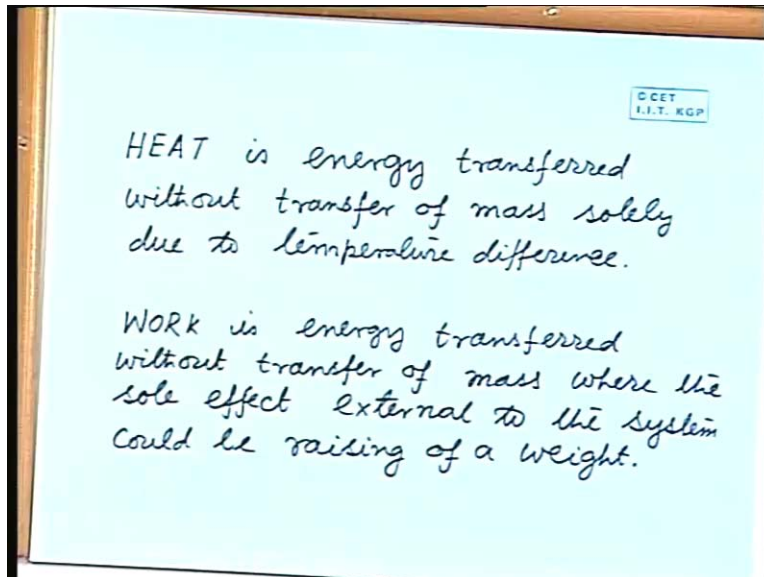 © CET
I.I.T. KGP
HEAT is energy transferred
without transfer of mass solely
due to temperature difference.
WORK is energy transferred
without transfer of mass where the
sole effect external to the system
could be raising of a weight.